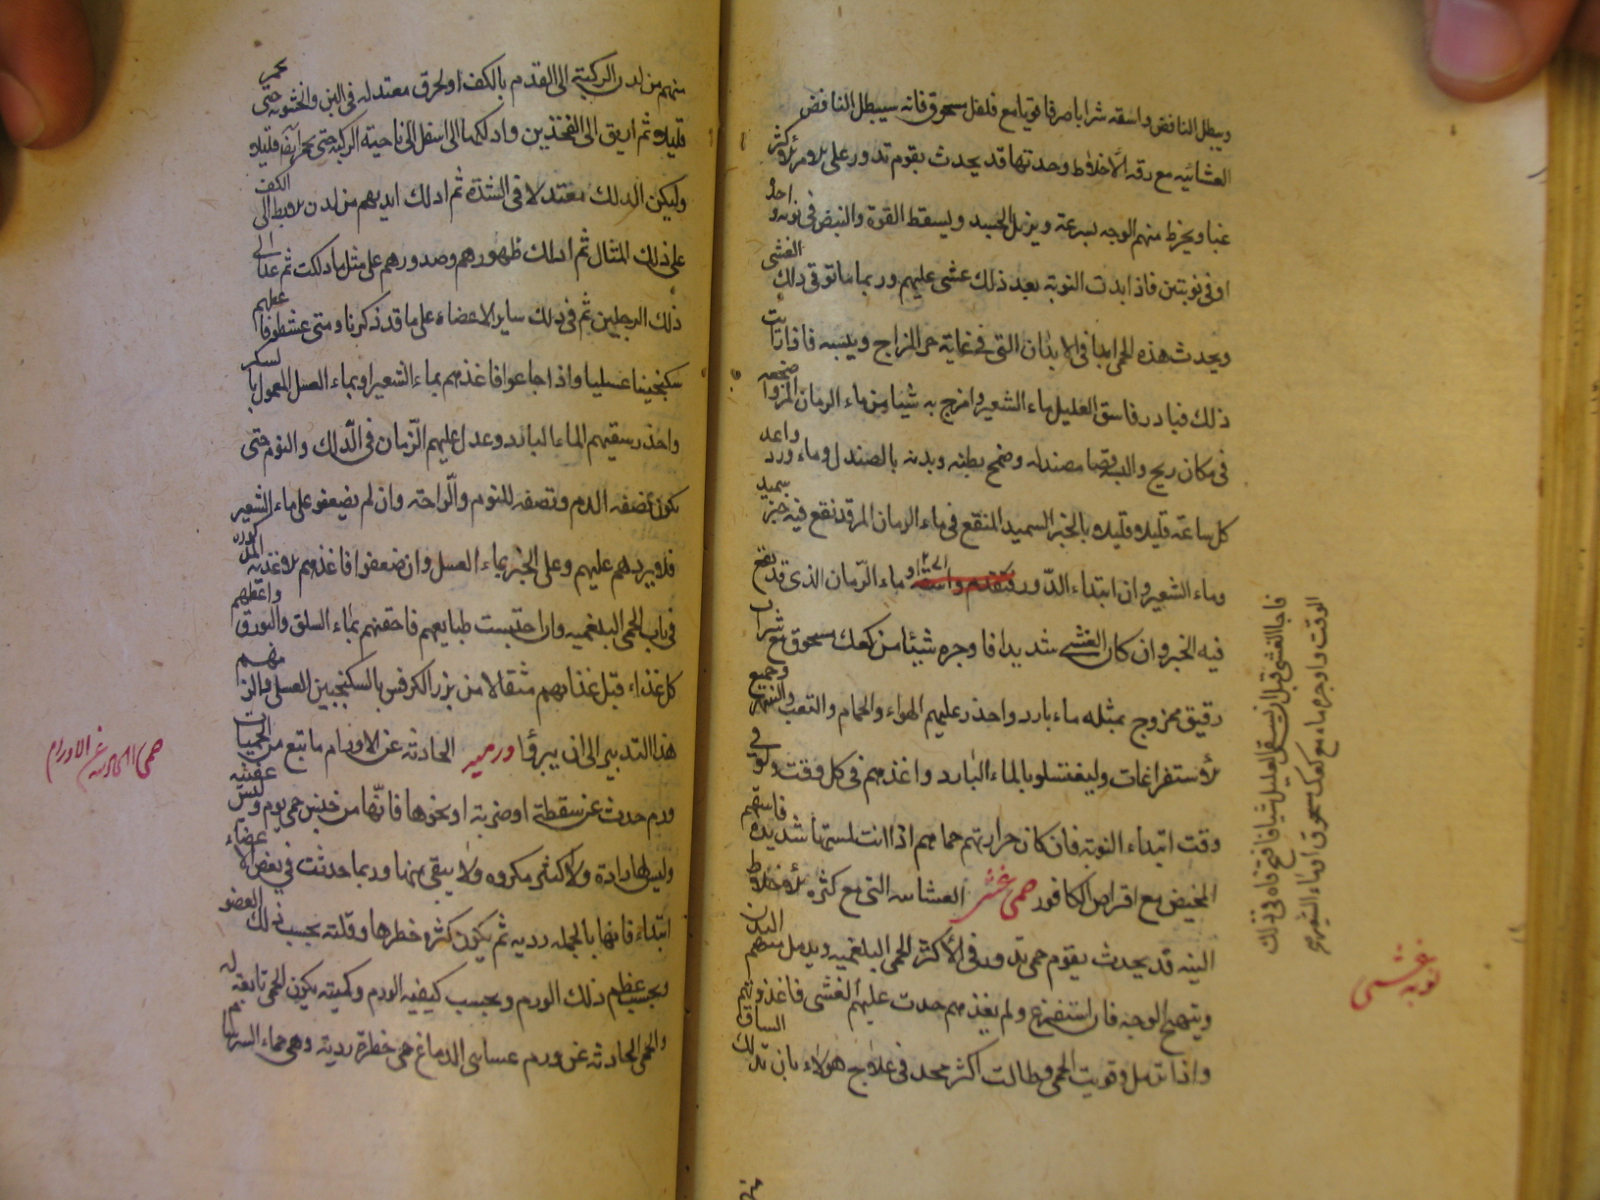 ويبطل النافض واسقه شرابا صرفا قويا مع فلفل مسحوق فانه سيبطل النافض
الغشائيه مع رقه الأخلاط وحدتها قد يحدث بقوم تدور على الامر الاكثر
غبا ويخرط منهم الوجه بسرعة ويذبل الجسد ويسقط القوة والنبض في نوبة واحدة
او في نوبتين فاذا بدت النوبة بعد ذلك غشى عليهم وربما ماتو في ذلك الغشى
ويحدث هذه الحمى ابدا في الابدان التى في غاية حر المزاج ويبسه فاذا رايت
ذلك فبادر فاسق العليل ماء الشعير وامزج به شيئا من ماء الرمان المز واضجعه
في مكان ريح والبسه قميصا مصندلا وضمخ بطنه وبدنه بالصندل وماء ورد واغد
كل ساعة قليلا قليلا بالخبز السميد المنقع في ماء الرمان المز قد نقع فيه خبز سميد
وماء الشعير وان ابتداء الدور وماء الرمان الذى قد نقع
فيه الخبز وان كان الغشى شديدا فاوجره شيئا من كعك مسحوق مع شراب
رقيق ممزوج بمثله ماء بارد واحذر عليهم الهواء والحمام والتعب والسهر وجميع
الاستفراغات وليغتسلو بالماء البارد واغذهم في كل وقت ولو في
وقت ابتداء النوبة فان كان حرارتهم حماهم اذا انت لمستها شديدة فاسقهم
المخيض مع اقراص الكافور حمى غشى الغشائيه التى مع كثرة الاخلاط
النيه قد يحدث بقوم حمى تدور في الأكثر الحمى البلغميه ويذبل منهم البدن
ويتهيج الوجه فان استفرغ ولم يغذهم حدث عليهم الغشى فاغذوهم
واذا تزبل وقويت الحمى وطالت اكثر فخذ في علاج هولاء بان تدلك الساق
فاجا الغشى قبل ان يسقى العليل شيئا فافتح فاه في ذلك
الوقت واوجره ماء مع كعك مسحوق او ماء الشعير مر
نوبه غشى
منهم من لدن الركبة الى القدم بالكف او لخرق معتدله في اللين والخشونه حتى يحمر
قليلا ثم اريق الى الفخذين وادلكهما الى اسفل الى ناحية الركبة حتى يحمر ايضا قليلا
وليكن الدلك معتدلا في الشدة ثم ادلك ايديهم من لدن الابط الى الكف
على ذلك المثال ثم ادلك ظهورهم وصدورهم على مثل ما دلكت ثم عد الى
ذلك الرجلين ثم في دلك ساير الاعضاء على ما قد ذكرنا ومتى عطشو فا عطهم
سكنجبينا عسليا واذا جاعوا فاغذهم بماء الشعير او بماء العسل المعمول بالسكر
واحذر سقيهم الماء البارد وعدل عليهم الزمان في الدلك والنوم حتى
يكون نصفه الدم ونصفه للنوم والراحة وان لم يضعفو على ماء الشعير
فلا يزدهم عليهم وعلى الخبز بماء العسل وان ضعفوا فاغذهم بالاغذية المذكوره
في باب الحمى البلغميه وان احتبست طبايعهم فاحقنهم بماء السلق والبورق واعطهم
كل غذاء قبل غذائهم مثقالا من بزر الكرفس بالسكنجبين العسلى والزمهم
هذا التدبير الى ان يبرؤا ورميه الحادثه عن الاورام ما تبع من الحميات
ورم حدث عن سقطة او ضربة او نحوها فانها من جنس حمى يوم وليس عفنيه
وليس لها رداءة ولا كثير مكروه ولا يبقى منها وربما حدثت في بعض الاعضاء
ابتداء فانها بالجمله رديه ثم يكون كثرة خطرها وقلته بحسب ذلك العضو
وبحسب عظم ذلك الورم وبحسب كيفيه الورم وكميته يكون الحمى تابعة له
والحمى الحادثه عن ورم غشائى الدماغ هى خطرة ردية وهى حماء السرسام
حمى الحادثه عن الاورام